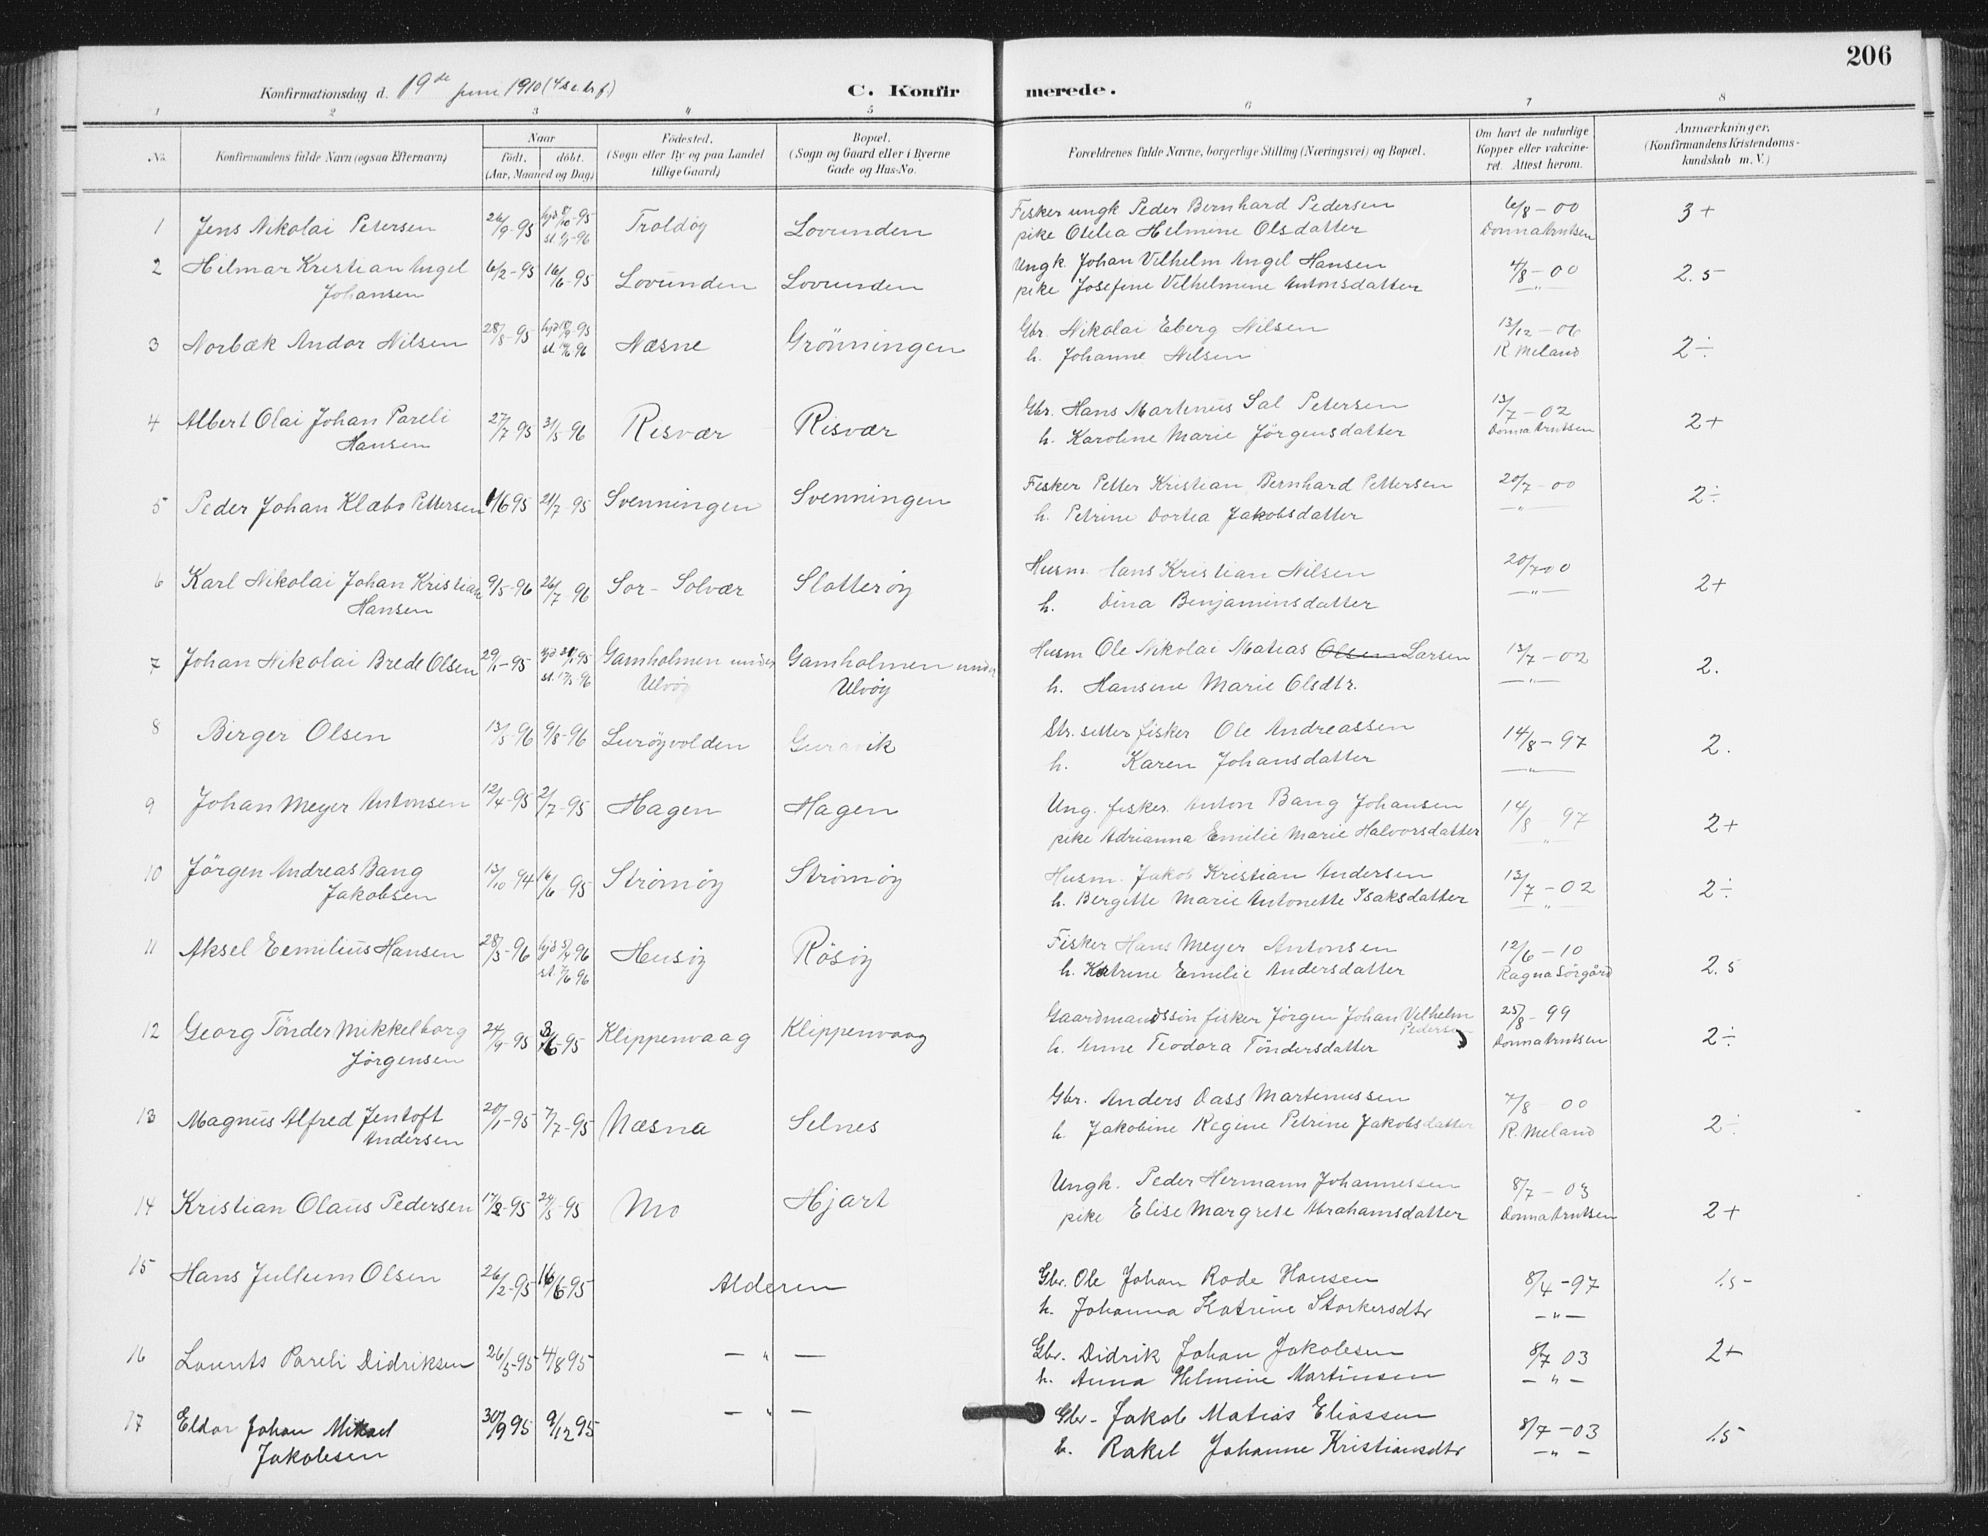 206
Konfirmationsdag d. 19de juni 1910 (4 s e. tr f.) C. Konfirmerede.
1 2 3 4 5 6 7 8
No. Konfirmandens fulde Navn (ogsaa Efternavn) Naar født. døbt. (Aar, Maaned og Dag) Fødested. (Sogn eller By og paa Landet tillige Gaard) Bopæl. (Sogn og Gaard eller i Byerne Gade og Hus-No. Forældrenes fulde Navne, borgerlige Stilling (Næringsvei) og Bopæl. Om havt de naturlige Kopper eller vakcineret. Attest herom. Anmærkninger. (Konfirmandens Kristendomskundskab m. V.)
1 Jens Nikolai Petersen 26/9-95 hjd 8/10-95 Troldöy Lovunden Fisker ungk Peder Bernhard Pedersen 6/8-00 3+
st. 1/1-96 pike Otilia Helmine Olsdatter Donna Arntsen
2 Hilmar Kristian Angel 6/2-95 16/6-95 Lovunden Lovunden Ungk. Johan Vilhelm Angel Hansen 4/8-00 2.5
Johansen pike Josefine Vilhelmine Antonsdatter —"—
3 Norbæk Andor Nilsen 28/8-95 Næsne Grönningen Gbr. Nikolai Eberg Nilsen 13/12-06 2÷
h. Johanne Nilsen R. Meland
4 Albert Olai Johan Pareli 27/7-95 31/5-96 Risvær Risvær Gbr. Hans Martinus Sal Petersen 13/7-02 2+
Hansen h. Karoline Marie Jörgensdatter Donna Arntsen
5 Peder Johan Klæbo Pettersen 1/6 95 21/7-95 Svenningen Svenningen Fisker Petter Kristian Bernhard Pettersen 20/7-00 2÷
h. Petrine Dortea Jakobsdatter —"—
6 Karl Nikolai Johan Kristian 9/5-96 26/7-96 Sor-Solvær Slotteröy Husm. Hans Kristian Nilsen 20/7 00 2+
Hansen h. Dina Benjaminsdatter —"—
7 Johan Nikolai Brede Olsen 29/1-95 Gamholmen under Gamholmen under Husm Ole Nikolai Matias Olsen Larsen 13/7-02 2.
Ulvöy Ulvöy h. Hansine Marie Olsdtr. —"—
8 Birger Olsen 13/5-96 9/8-96 Luröyvolden Guravik Str.sitter fisker Ole Andreassen 14/8-97 2.
h. Karen Johansdatter —"—
9 Johan Meyer Antonsen 12/4-95 2/7-95 Hagen Hagen Ung. fisker Anton Bang Johansen 14/8-97 2+
pike Adrianna Emilie Marie Halvorsdatter —"—
10 Jörgen Andreas Bang 13/10-94 16/6-95 Strömöy Strömöy Husm. Jakob Kristian Andersen 13/7-02 2÷
Jakobsen h. Bergitte Marie Antonette Isaksdatter —"—
11 Aksel Eemilius Hansen 28/3-96 hjd 5/4 96 Husöy Rösöy Fisker Hans Meyer Antonsen 12/6-10 2.5
st 7/6 96 h. Katrine Emilie Andersdatter Ragna Sörgård
12 Georg Tönder Mikkelborg 24/4-95 3/6-95 Klippenvaag Klippenvaag Gaardmandssön fisker Jörgen Johan Vilhelm 25/8-99 2÷
Jörgensen Pedersen
h. Anne Teodora Töndersdatter Donna Arntsen
13 Magnus Alfred Jentoft 20/1-95 7/7-95 Næsna Selnes Gbr. Anders Dass Martinussen 7/8 00 2÷
Andersen h. Jakobine Regine Petrine Jakobsdatter R. Meland
14 Kristian Olaus Pedersen 17/2-95 24/5-95 Mo Hjart Ungk. Peder Hermann Johannessen 8/7-03 2+
pike Elise Margrete Abrahamsdatter Donna Arntsen
15 Hans Jullum Olsen 26/2-95 16/6-95 Alderen Gbr. Ole Johan Rode Hansen 8/4-97 1.5-
h. Johanna Katrine Storkersdtr —"—
16 Laurits Pareli Didriksen 26/5-95 4/8 95 —"— Gbr. Didrik Johan Jakobsen 8/7 03 2+
h. Anna Helmine Martinsen —"—
17 Eldor Johan Mikael 30/9 95 9/12 95 —"— Gbr- Jakob Matias Eliassen 8/7-03 1.5
Jakobsen h. Rakel Johanne Kristiansdtr —"—